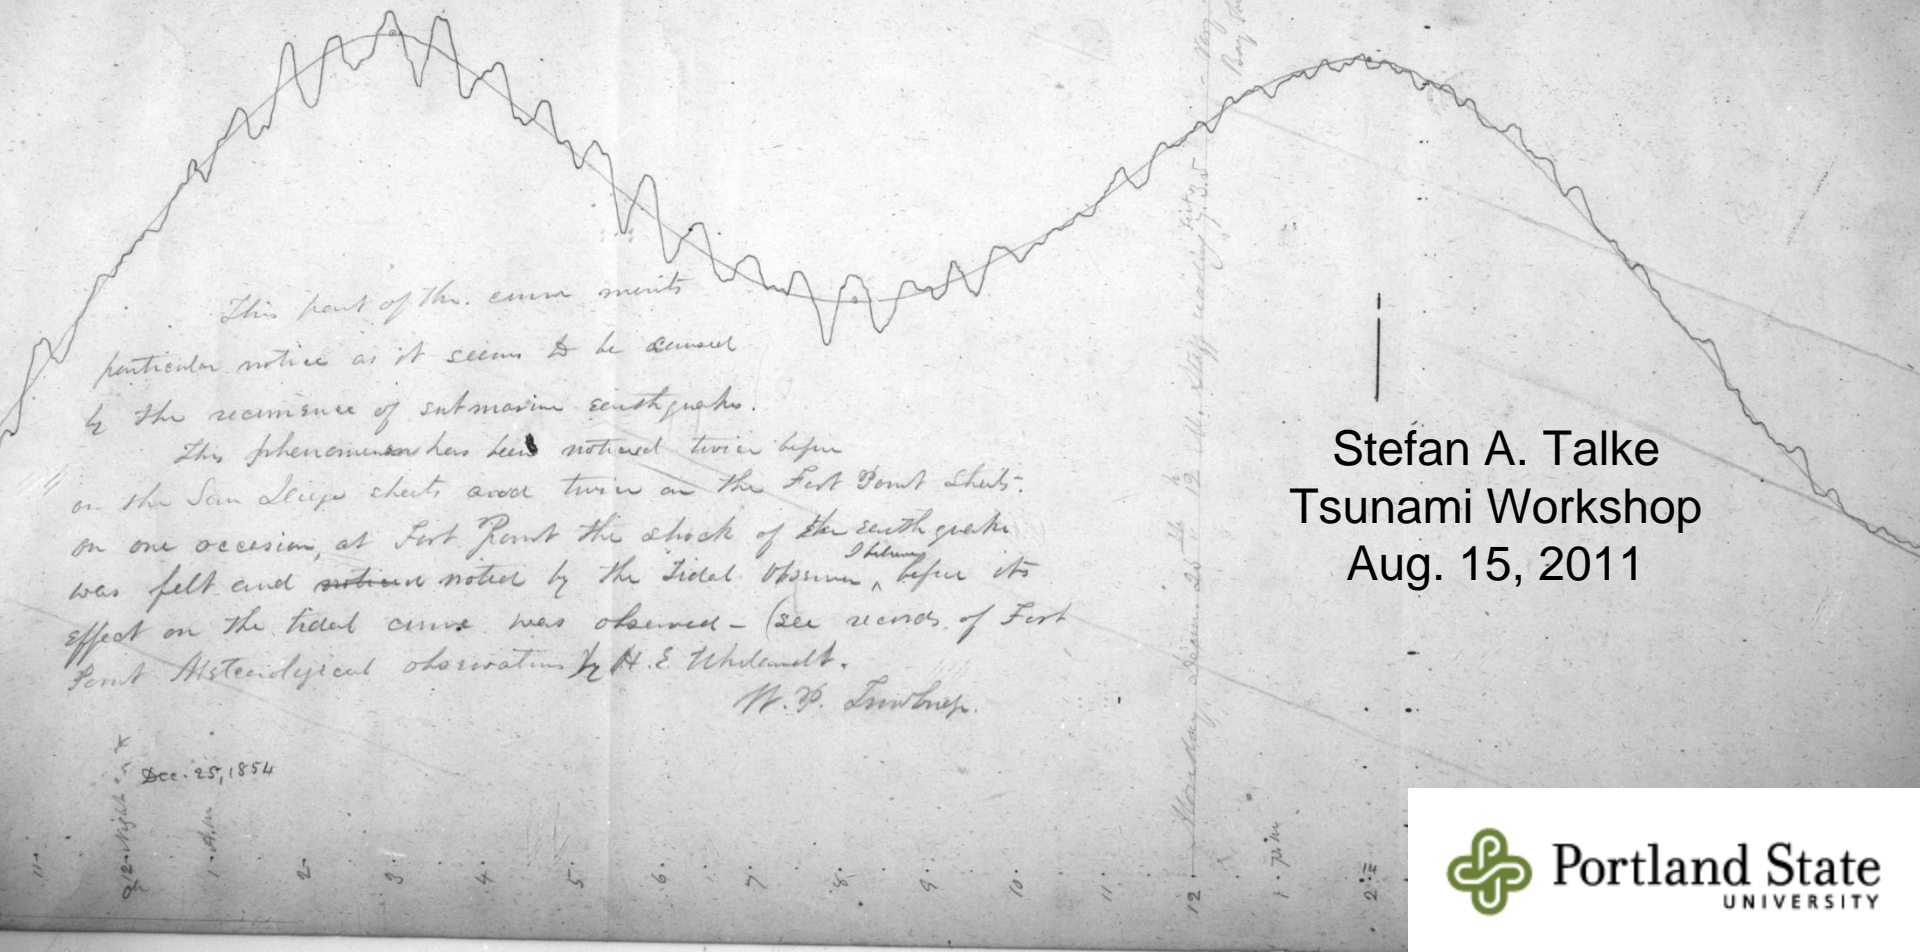 This part of the. curve merits
particular notice as it seems to be caused
by the recurrence of submarine earthquakes.
This phenomenon has been noticed twice before
on the San Diego sheets and twice on the Fort Point Sheets.
on one occasion, at Fort Point the shock of the earthquake
was felt and noticed noted by the Tidal Observer I believe before its
effect on the tidal curve was observed – (see records of Fort
Point Meteorological observations by H.E. Uhrlandt.
W. P. Trowbridge.
Dec. 25, 1854
11
12 Night
1 A.M
2
3
4
5
6
7
8
9
10
11
12
1 P.M
2
Monday December 25th 12 M. Staff reading 7.35
Stefan A. Talke
Tsunami Workshop
Aug. 15, 2011
Portland State
UNIVERSITY